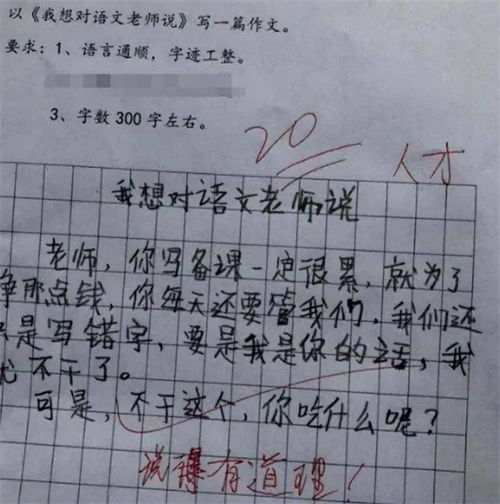 以《我想对语文老师说》写一篇作文。
要求：1、语言通顺，字迹工整。
3、字数 300 字左右。
20
人才
我想对语文老师说
老师，你写备课一定很累，就为了
挣那点钱，你每天还要管我们，我们还
是写错字，要是我是你的话，我
不干了。
可是，不干这个，你吃什么呢？
说得有道理！